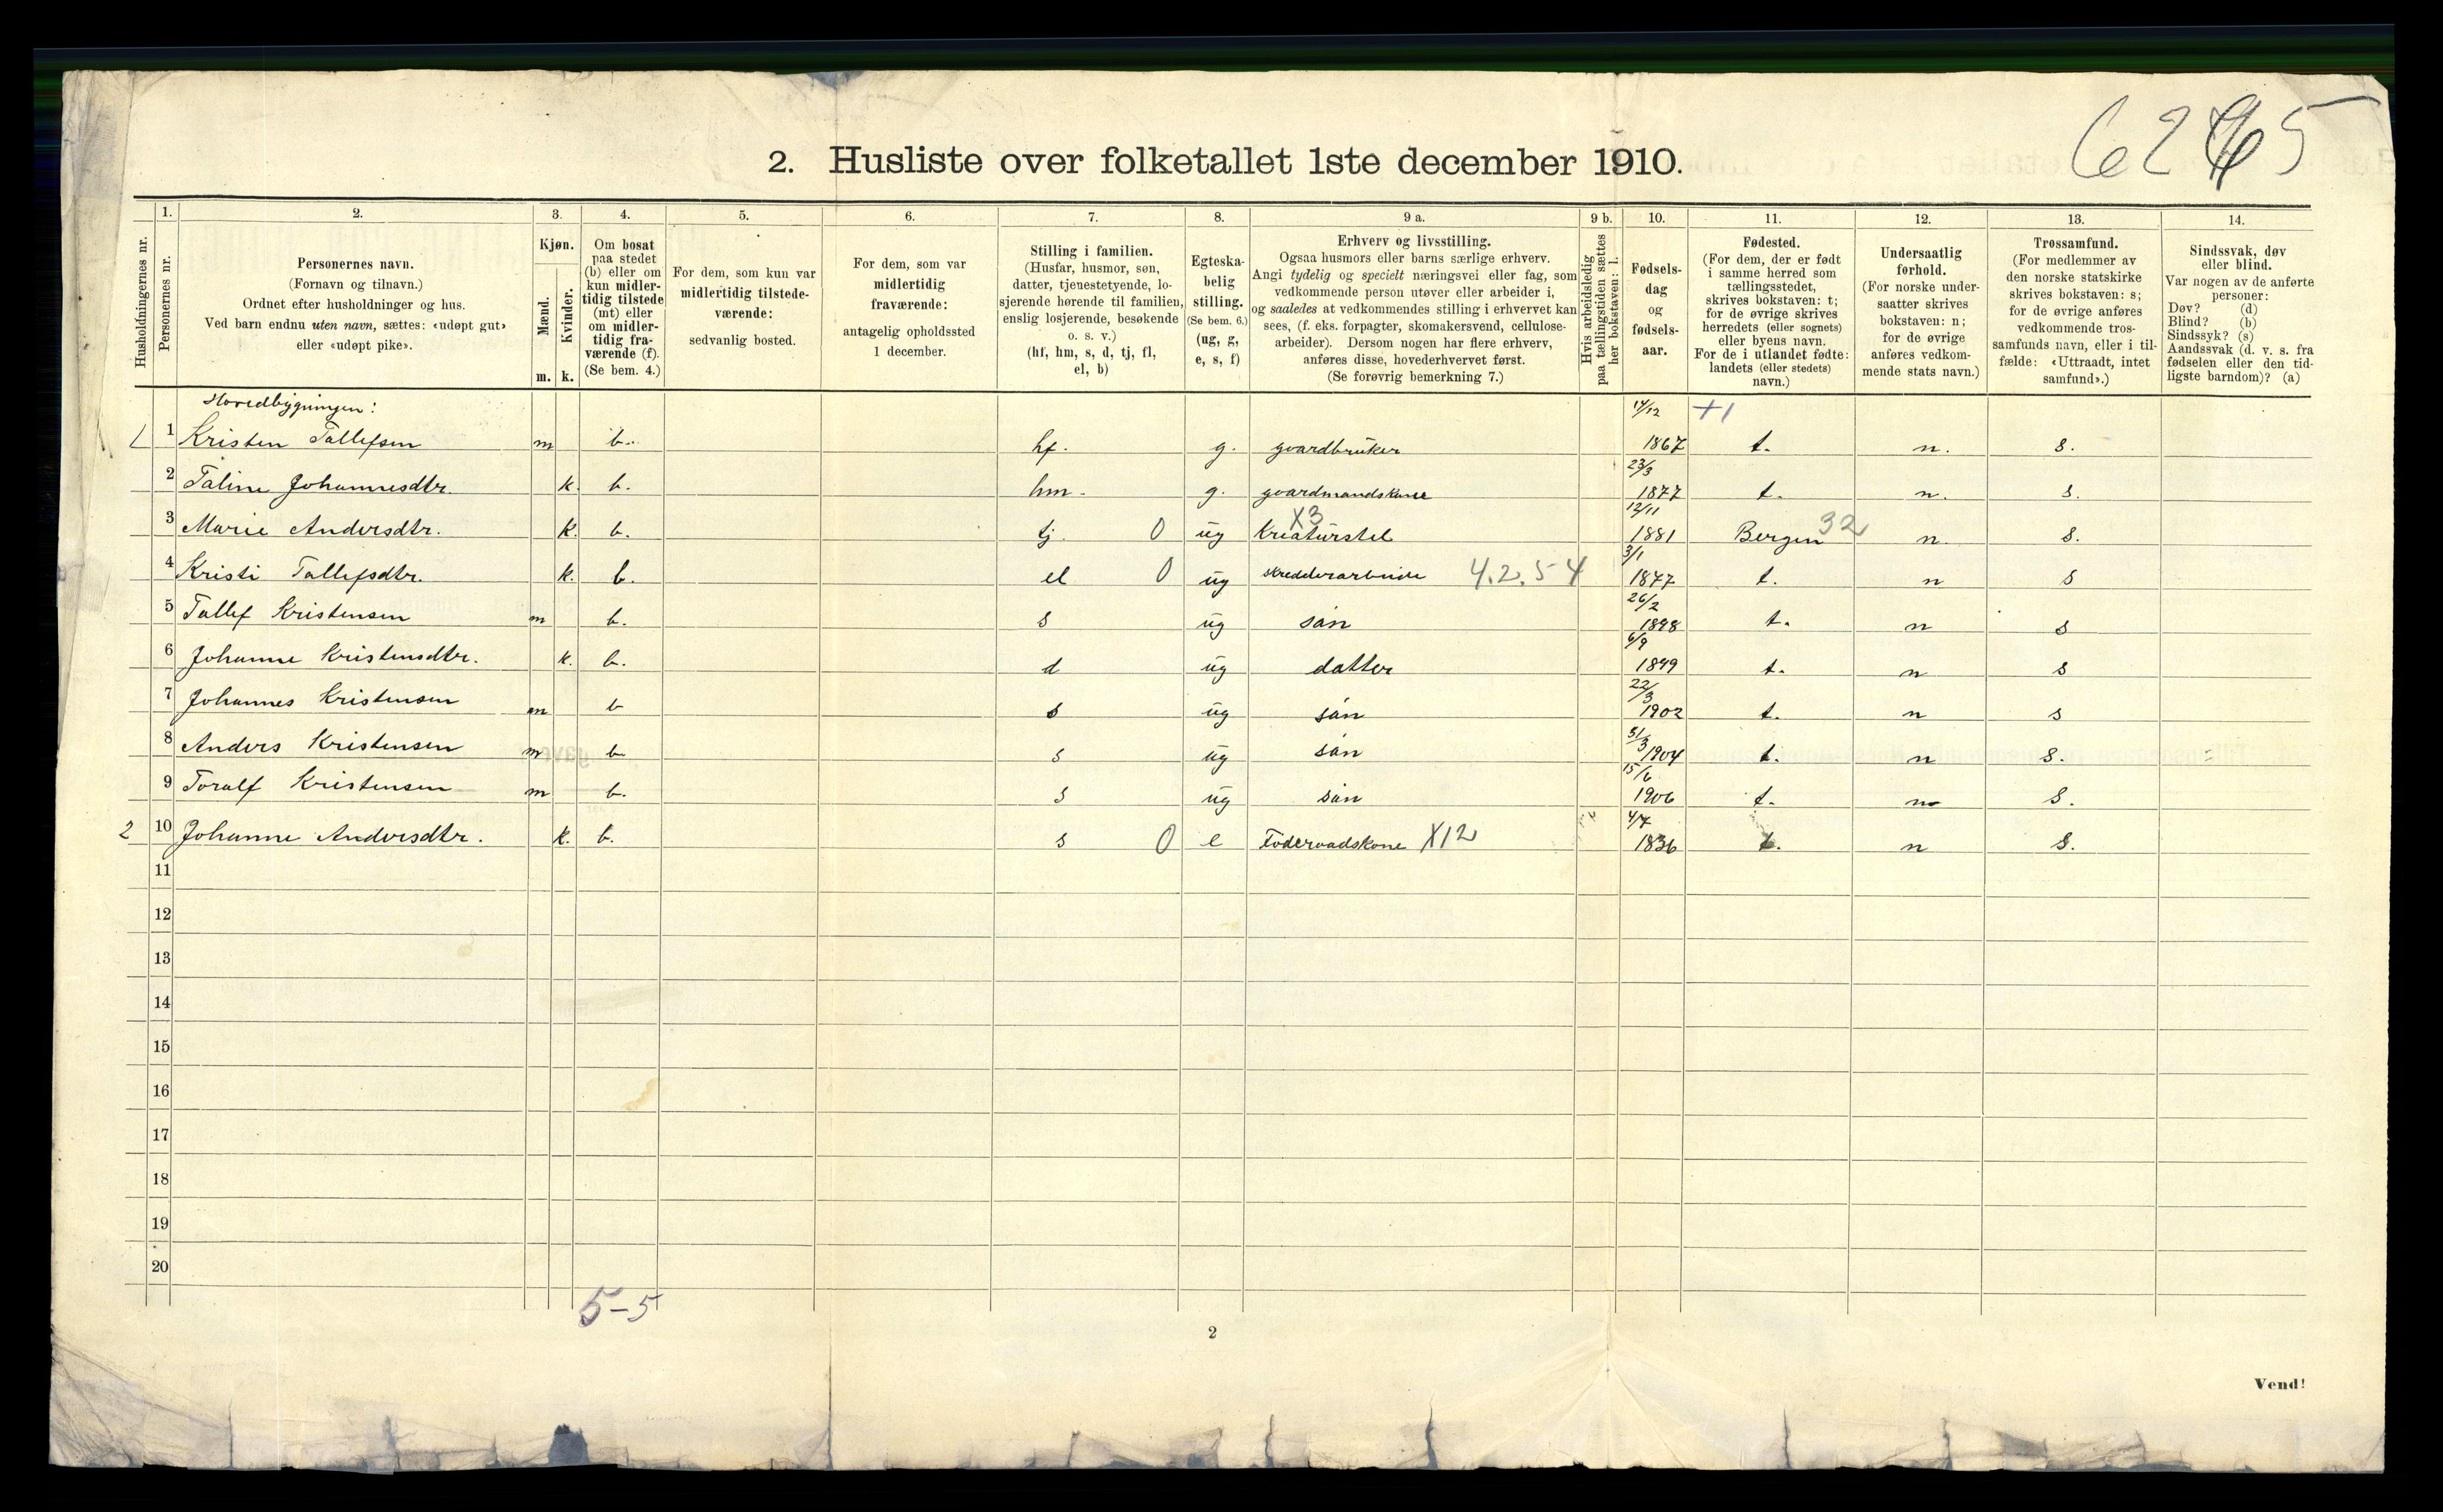 6265
2. Husliste over folketallet 1ste december 1910.
Husholdningernes nr.
1. Personernes nr.
2. Personernes navn.
(Fornavn og tilnavn.)
Ordnet efter husholdninger og hus.
Ved barn endnu uten navn, sættes: «udøpt gut»
eller «udøpt pike».
3. Kjøn.
Mænd. m.
Kvinder. k.
4. Om bosat
paa stedet
(b) eller om
kun midler-
tidig tilstede
(mt) eller
om midler-
tidig fra-
værende (f).
(Se bem. 4.)
5. For dem, som kun var
midlertidig tilstede-
værende:
sedvanlig bosted.
6. For dem, som var
midlertidig
fraværende:
antagelig opholdssted
1 december.
7. Stilling i familien.
(Husfar, husmor, søn,
datter, tjenestetyende, lo-
sjerende hørende til familien,
enslig losjerende, besøkende
o. s. v.)
(hf, hm, s, d, tj, fl,
el, b)
8. Egteska-
belig
stilling.
(Se bem. 6.)
(ug, g,
e, s, f)
9 a. Erhverv og livsstilling.
Ogsaa husmors eller barns særlige erhverv.
Angi tydelig og specielt næringsvei eller fag, som
vedkommende person utøver eller arbeider i,
og saaledes at vedkommendes stilling i erhvervet kan
sees, (f. eks. forpagter, skomakersvend, cellulose-
arbeider). Dersom nogen har flere erhverv,
anføres disse, hovederhvervet først.
(Se forøvrig bemerkning 7.)
9 b. Hvis arbeidsledig
paa tællingstiden sættes
her bokstaven: l.
10. Fødsels-
dag
og
fødsels-
aar.
11. Fødested.
(For dem, der er født
i samme herred som
tællingsstedet,
skrives bokstaven: t;
for de øvrige skrives
herredets (eller sognets)
eller byens navn.
For de i utlandet fødte:
landets (eller stedets)
navn.)
12. Undersaatlig
forhold.
(For norske under-
saatter skrives
bokstaven: n;
for de øvrige
anføres vedkom-
mende stats navn.)
13. Trossamfund.
(For medlemmer av
den norske statskirke
skrives bokstaven: s;
for de øvrige anføres
vedkommende tros-
samfunds navn, eller i til-
fælde: «Uttraadt, intet
samfund».)
14. Sindssvak, døv
eller blind.
Var nogen av de anførte
personer:
Døv? (d)
Blind? (b)
Sindssyk? (s)
Aandssvak (d. v. s. fra
fødselen eller den tid-
ligste barndom)? (a)
Hovedbygningen: 14/12 +1
1 1 Kristen Tallefsen m b. hf. g. gaardbruker 1867 t. n. s.
2 Taline Johannesdtr. k. b. hm. g. gaardmandskone 23/3 1877 t. n. s.
3 Marie Andersdtr. k. b. tj. 0 ug Kreaturstel X3 12/11 1881 Bergen 32 n. s.
4 Kristi Tallefsdtr. k. b. el 0 ug skredderarbeide 4.2.54 3/1 1877 t. n s
5 Tallef Kristensen m b. s ug sån 26/2 1898 t. n s
6 Johanne Kristensdtr. k. b. d ug datter 6/9 1899 t. n s
7 Johannes Kristensen m b s ug sån 22/3 1902 t. n s
8 Anders Kristensen m b s ug sån 31/3 1904 t. n s.
9 Toralf Kristensen m b. s ug sån 15/6 1906 t. n s.
2 10 Johanne Andersdtr. k. b. s 0 e Föderaadskone X12 4/7 1836 t. n s.
11
12
13
14
15
16
17
18
19
20
5-5
2
Vend!